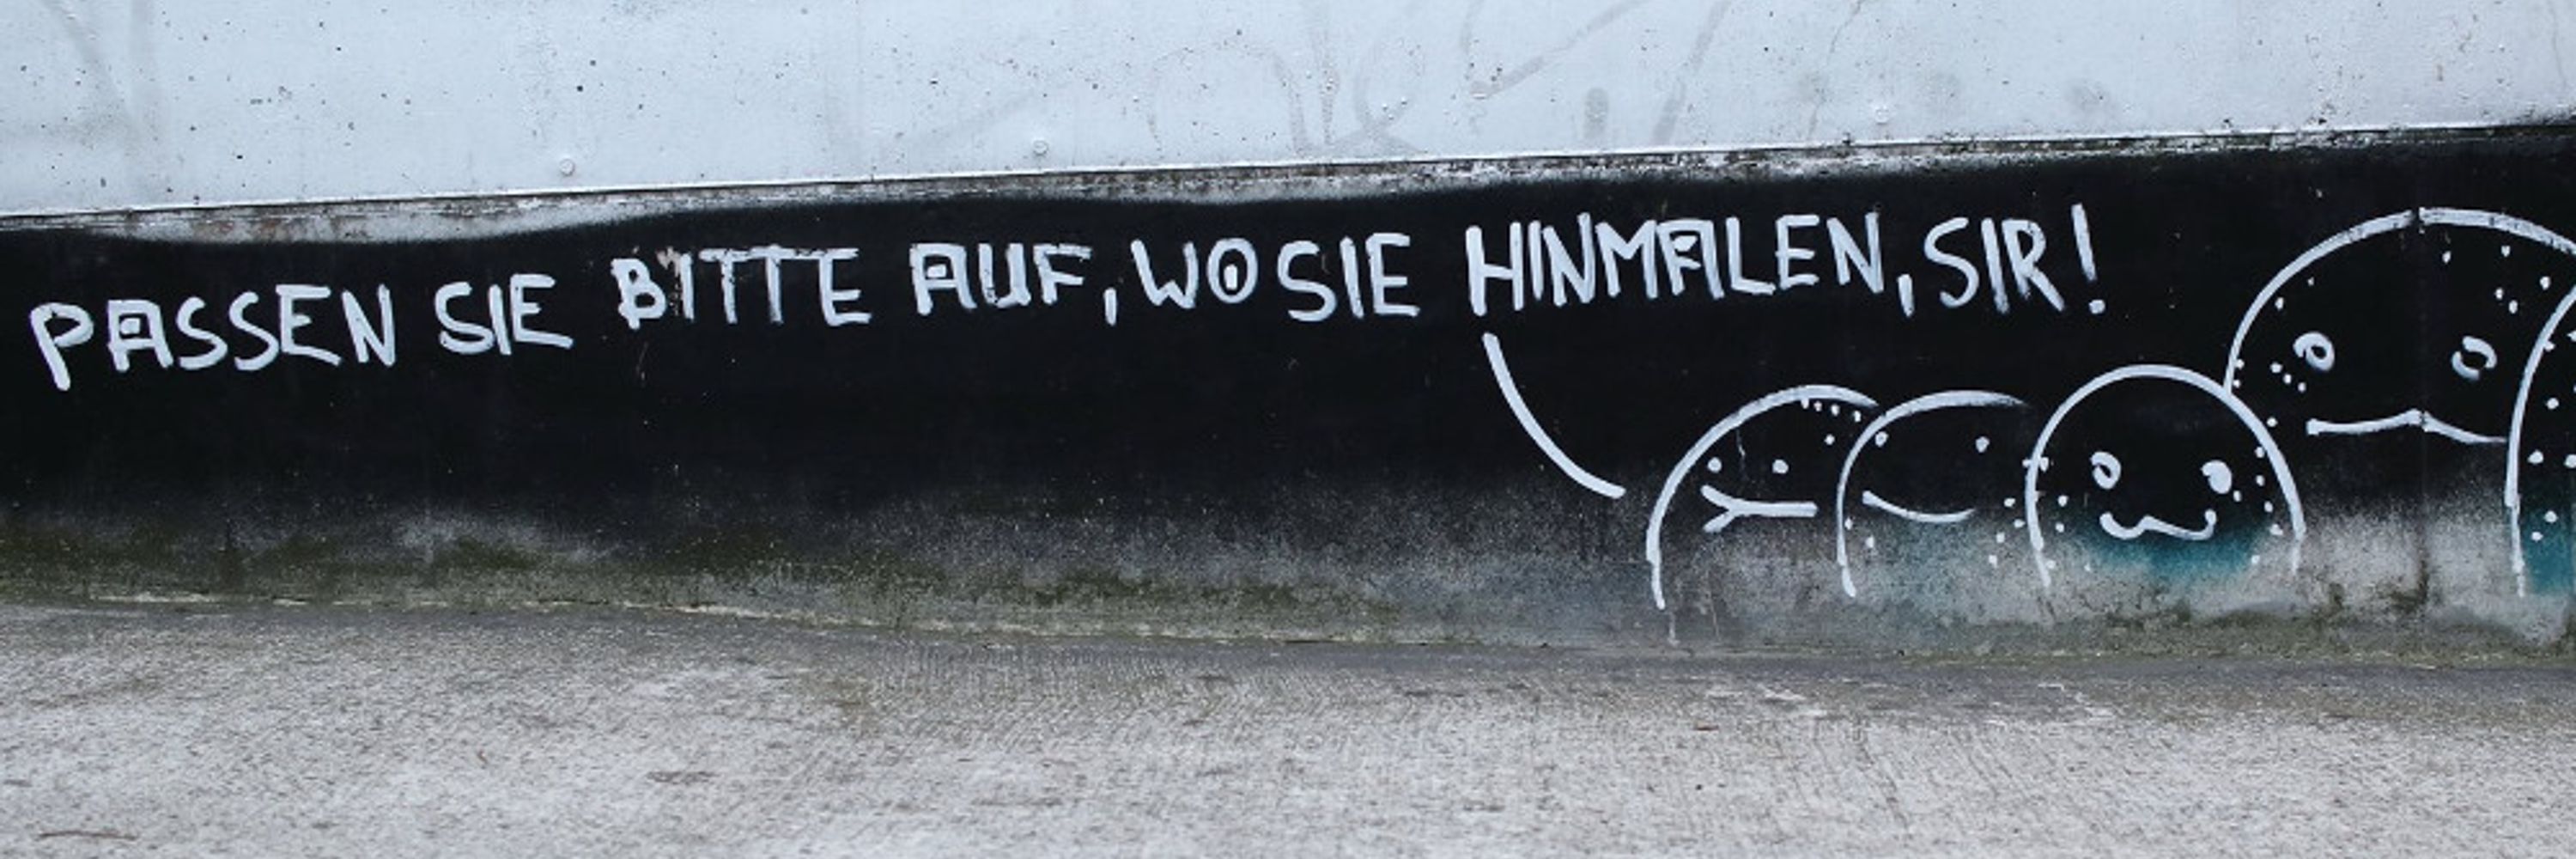 PASSEN SIE BITTE AUF, WO SIE HINMALEN, SIR!